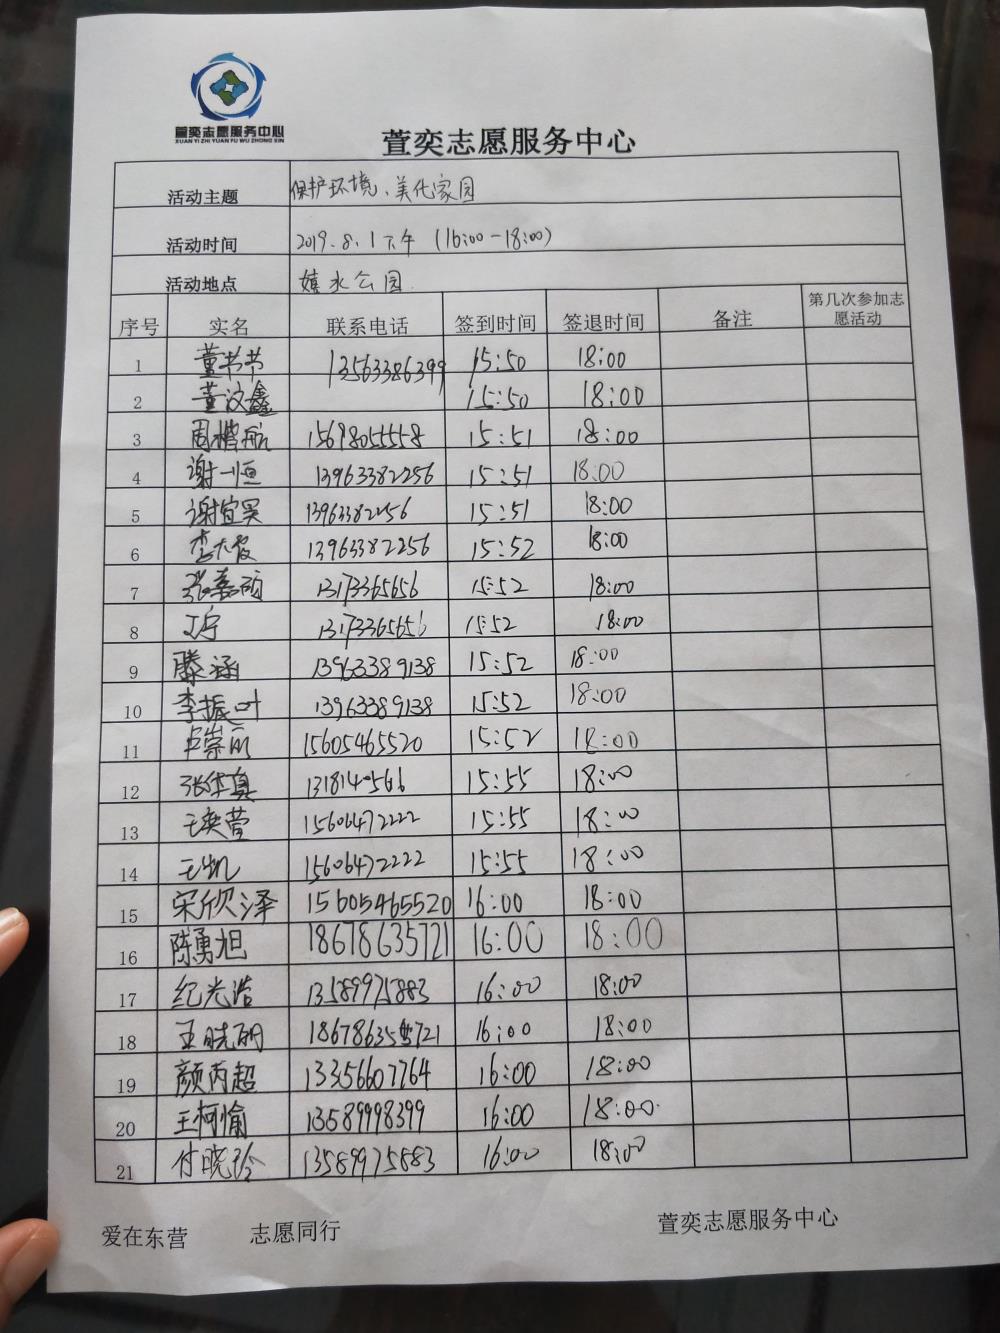 萱奕志愿服务中心
XUAN YI ZHI YUAN FU WU ZHONG XIN
萱奕志愿服务中心
活动主题 保护环境、美化家园
活动时间 2019.8.1下午 (16:00-18:00)
活动地点 嬉水公园
序号 实名 联系电话 签到时间 签退时间 备注 第几次参加志愿活动
1 董书书 13563386399 15:50 18:00
2 董汶鑫 15:50 18:00
3 周楷航 15698055558 15:51 18:00
4 谢一恒 13963382256 15:51 18:00
5 谢宜昊 13963382256 15:51 18:00
6 13963382256 15:52 18:00
7 张嘉硕 13173365656 15:52 18:00
8 丁宁 13173365656 15:52 18:00
9 滕涵 13963389138 15:52 18:00
10 李振叶 13963389138 15:52 18:00
11 卢崇丽 15605465520 15:52 18:00
12 张 真 1318140566 15:55 18:00
13 王奕萱 15606472222 15:55 18:00
14 王凯 15606472222 15:55 18:00
15 宋欣泽 15605465520 16:00 18:00
16 陈勇旭 18678635721 16:00 18:00
17 纪光浩 13589975883 16:00 18:00
18 王晓丽 18678635721 16:00 18:00
19 颜芮超 13356607764 16:00 18:00
20 王柯愉 13589998399 16:00 18:00
21 付晓玲 13589975883 16:00 18:00
爱在东营 志愿同行 萱奕志愿服务中心